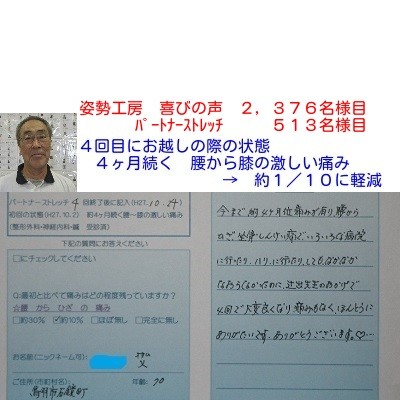 姿勢工房 喜びの声 2,376名様目
パートナーストレッチ 513名様目
4回目にお越しの際の状態
4ヶ月続く 腰から膝の激しい痛み
→ 約1/10に軽減
パートナーストレッチ 4 回終了後に記入(H27.10.24)
初回の状態(H27.10.2) 約4ヶ月続く腰~膝の激しい痛み
(整形外科・神経内科・鍼 受診済)
下記の質問にお答えください
□にチェックしてください
Q:最初と比べて痛みはどの程度残っていますか?
☆腰 から ひざ の 痛み
□約30% ☑約10% □ほぼ無し □完全に無し
お名前(ニックネーム可):
ご住所(市町村名) 年齢: 70
今まで約4ケ月位痛みが有り腰から
ひざ坐骨しんけい痛でいろいろな病院
に行ったり、ハリに行ったりしてもなかなか
なおらなかったのに、辻出先生のおかげで
4回で大変良くなり痛みもなく、ほんとうに
ありがたいです。ありがとうございます。♡…